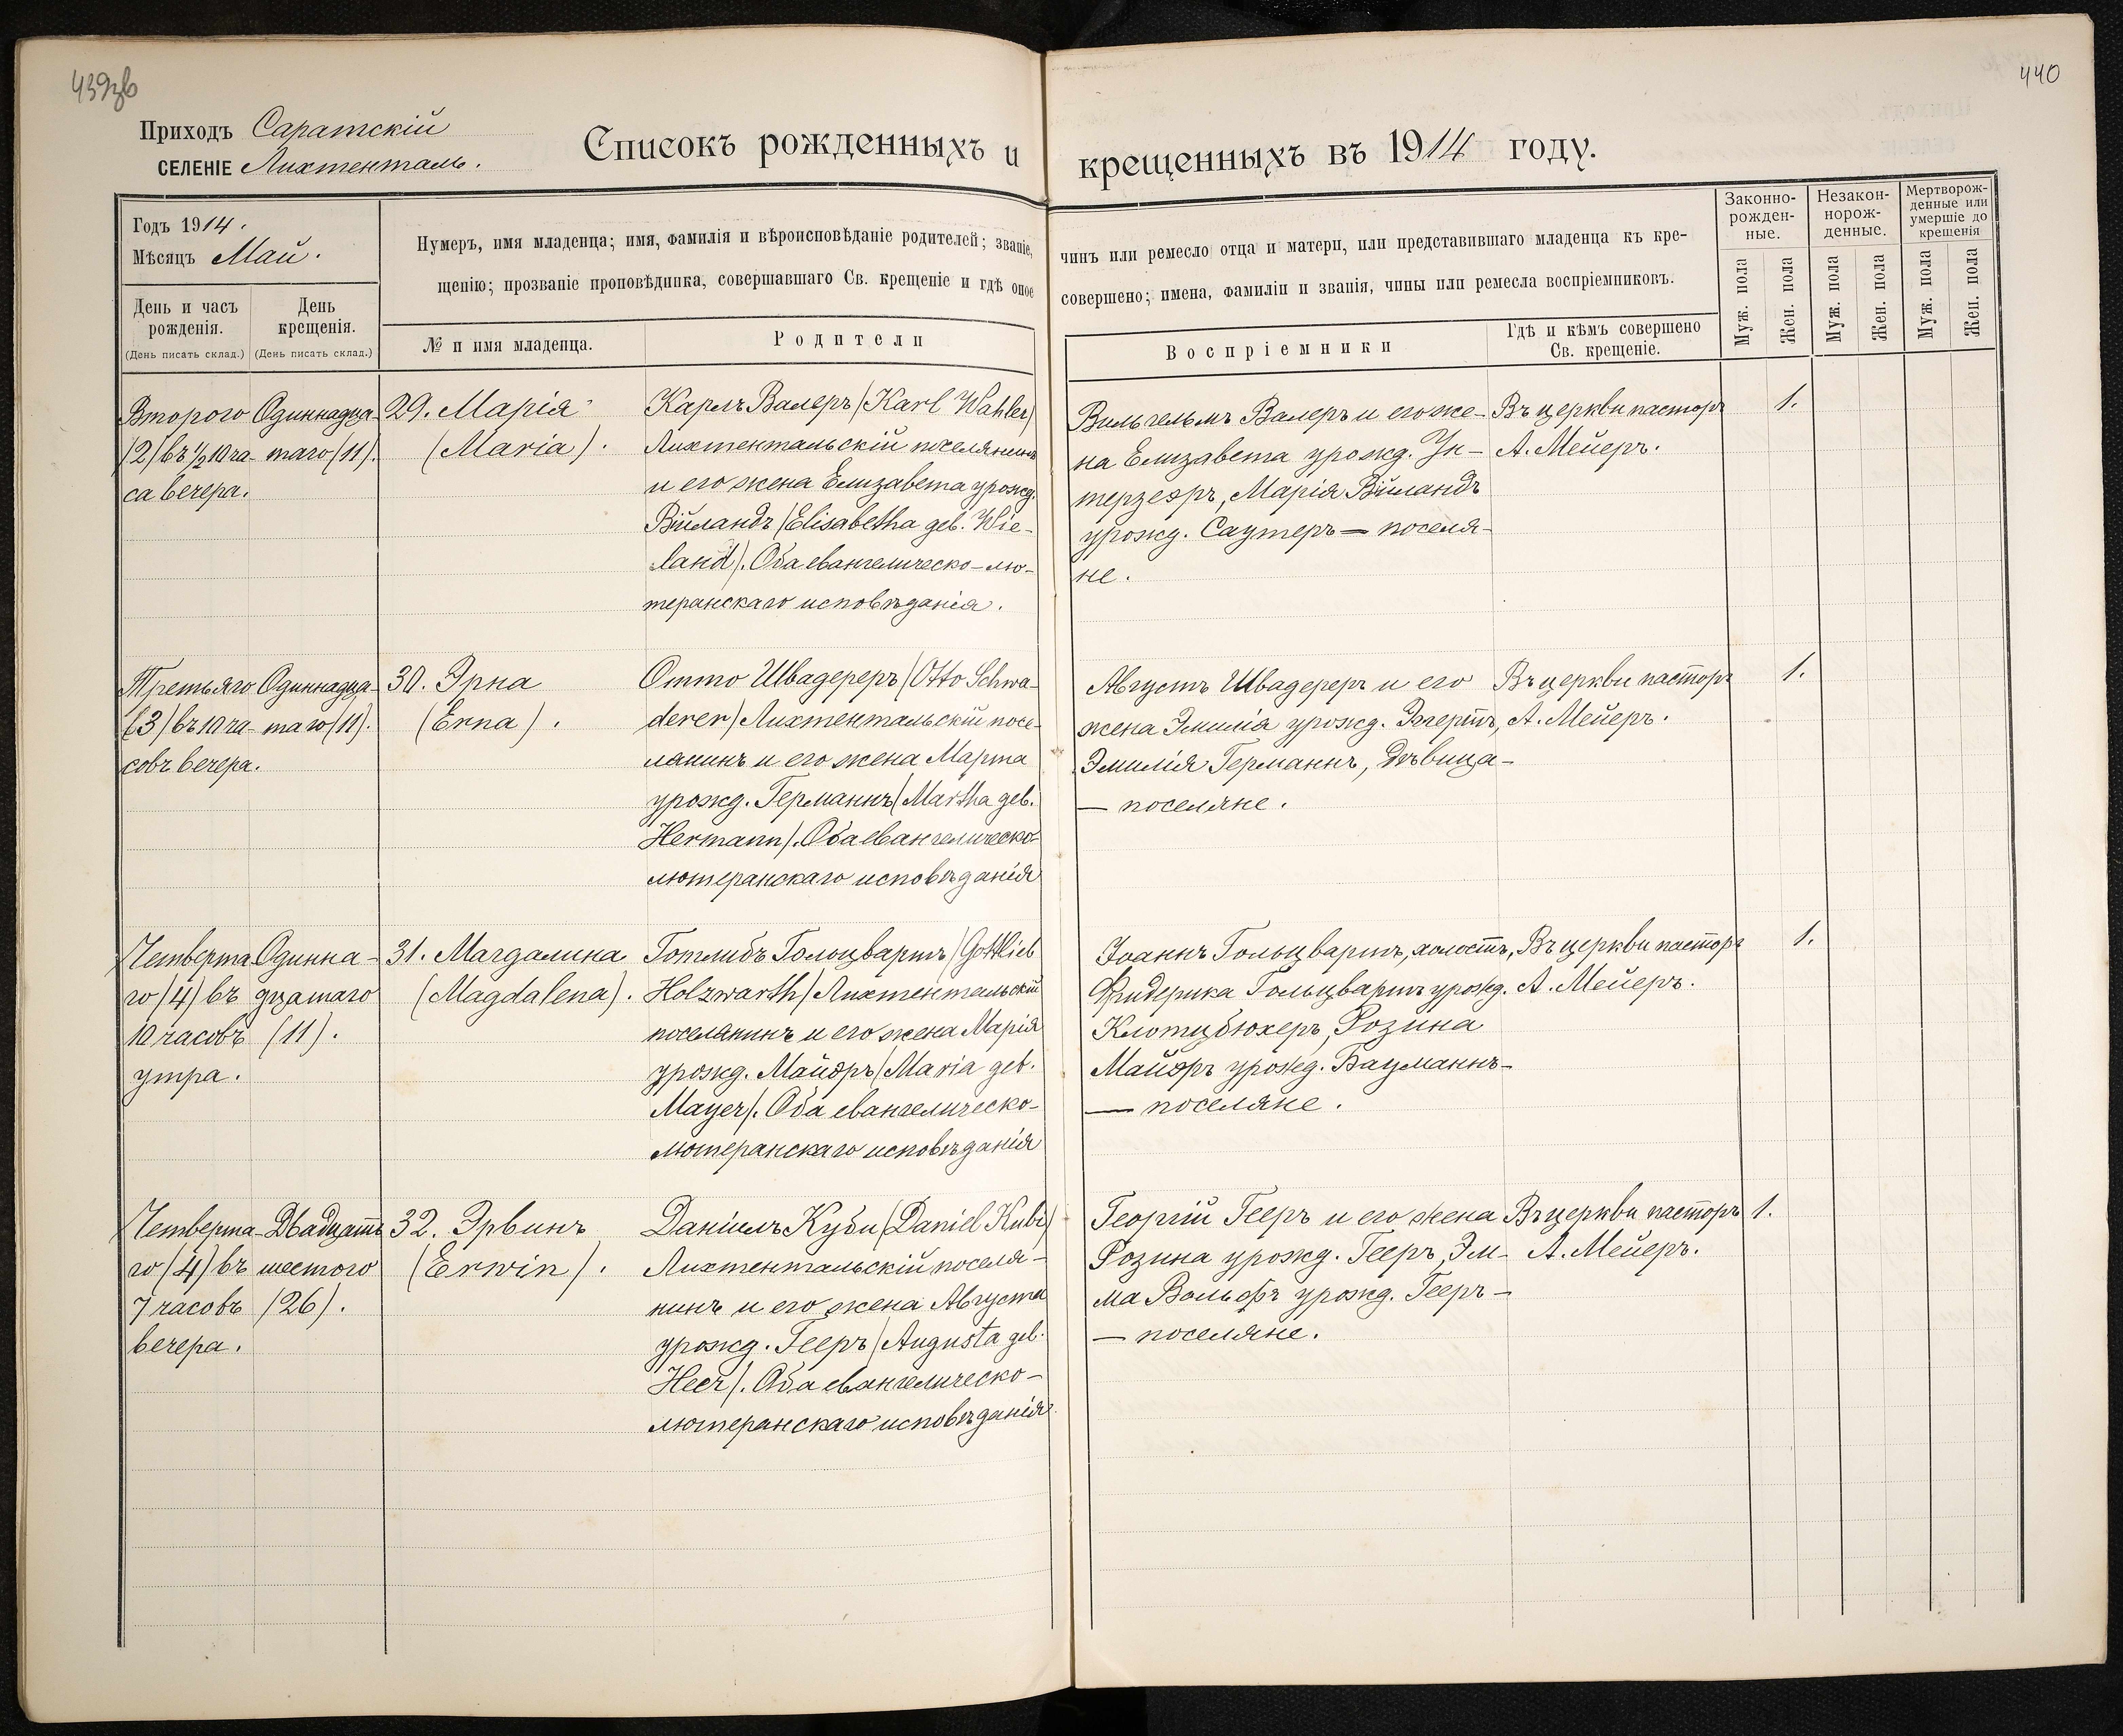 439об
440
Приходъ Саратскій
СЕЛЕНІЕ Лихтенталь.
Списокъ рожденныхъ и крещенныхъ въ 1914 году.
Годъ 1914.
Мѣсяцъ Май.
День и часъ рожденія.
(День писать склад.)
День крещенія.
(День писать склад.)
Нумеръ, имя младенца; имя, фамилія и вѣроисповѣданіе родителей; званіе, чинъ или ремесло отца и матери, или представившаго младенца къ кре-
щенію; прозваніе проповѣдника, совершавшаго Св. крещеніе и гдѣ оное совершено; имена, фамиліи и званія, чины или ремесла воспріемниковъ.
№ и имя младенца.
Родители
Воспріемники
Гдѣ и кѣмъ совершено
Св. крещеніе.
Законно-
рожден-
ные.
Незакон-
норож-
денные.
Мертворож-
денные или
умершіе до
крещенія
Муж. пола
Жен. пола
Муж. пола
Жен. пола
Муж. пола
Жен. пола
Второго
(2) въ ½10 ча-
са вечера.
Одиннадца-
таго (11).
29. Марія
(Maria).
Карлъ Валеръ (Karl Wahler)
Лихтентальскій поселянинъ
и его жена Елизавета урожд.
Виландъ (Elisabetha geb. Wie-
land). Оба евангелическо-лю-
теранскаго исповѣданія.
Вильгельмъ Валеръ и его же-
на Елизавета урожд. Ун-
терзееръ, Марія Виландъ
урожд. Саутеръ — поселя-
не.
Въ церкви пасторъ
А. Мейеръ.
1.
Третьяго
(3) въ 10 ча-
совъ вечера.
Одиннадца-
таго (11).
30. Эрна
(Erna).
Отто Швадереръ (Otto Schwa-
derer) Лихтентальскій посе-
лянинъ и его жена Марта
урожд. Германнъ (Martha geb.
Hermann). Оба евангелическо-
лютеранскаго исповѣданія
Августъ Швадереръ и его
жена Эмилія урожд. Эггертъ,
Эмилія Германнъ, дѣвица —
— поселяне.
Въ церкви пасторъ
А. Мейеръ.
1.
Четверта
го (4) въ
10 часовъ
утра.
Одинна-
дцатаго
(11).
31. Магдалина
(Magdalena).
Готлибъ Гольцвартъ (Gottlieb
Holzwarth) Лихтентальскій
поселянинъ и его жена Марія
урожд. Майэръ (Maria geb.
Mayer). Оба евангелическо-
лютеранскаго исповѣданія
Іоаннъ Гольцвартъ, холостъ,
Фридерика Гольцвартъ урожд.
Клотцбюхеръ, Розина
Майэръ урожд. Бауманнъ —
— поселяне.
Въ церкви пасторъ
А. Мейеръ.
1.
Четверта-
го (4) въ
7 часовъ
вечера.
Двадцать
шестого
(26).
32. Эрвинъ
(Erwin).
Даніилъ Куби (Daniel Kubi)
Лихтентальскій поселя-
нинъ и его жена Августа
урожд. Гееръ (Augusta geb.
Heer). Оба евангелическо-
лютеранскаго исповѣданія.
Георгій Гееръ и его жена
Розина урожд. Гееръ, Эм-
ма Вольфъ урожд. Гееръ —
— поселяне.
Въ церкви пасторъ
А. Мейеръ.
1.